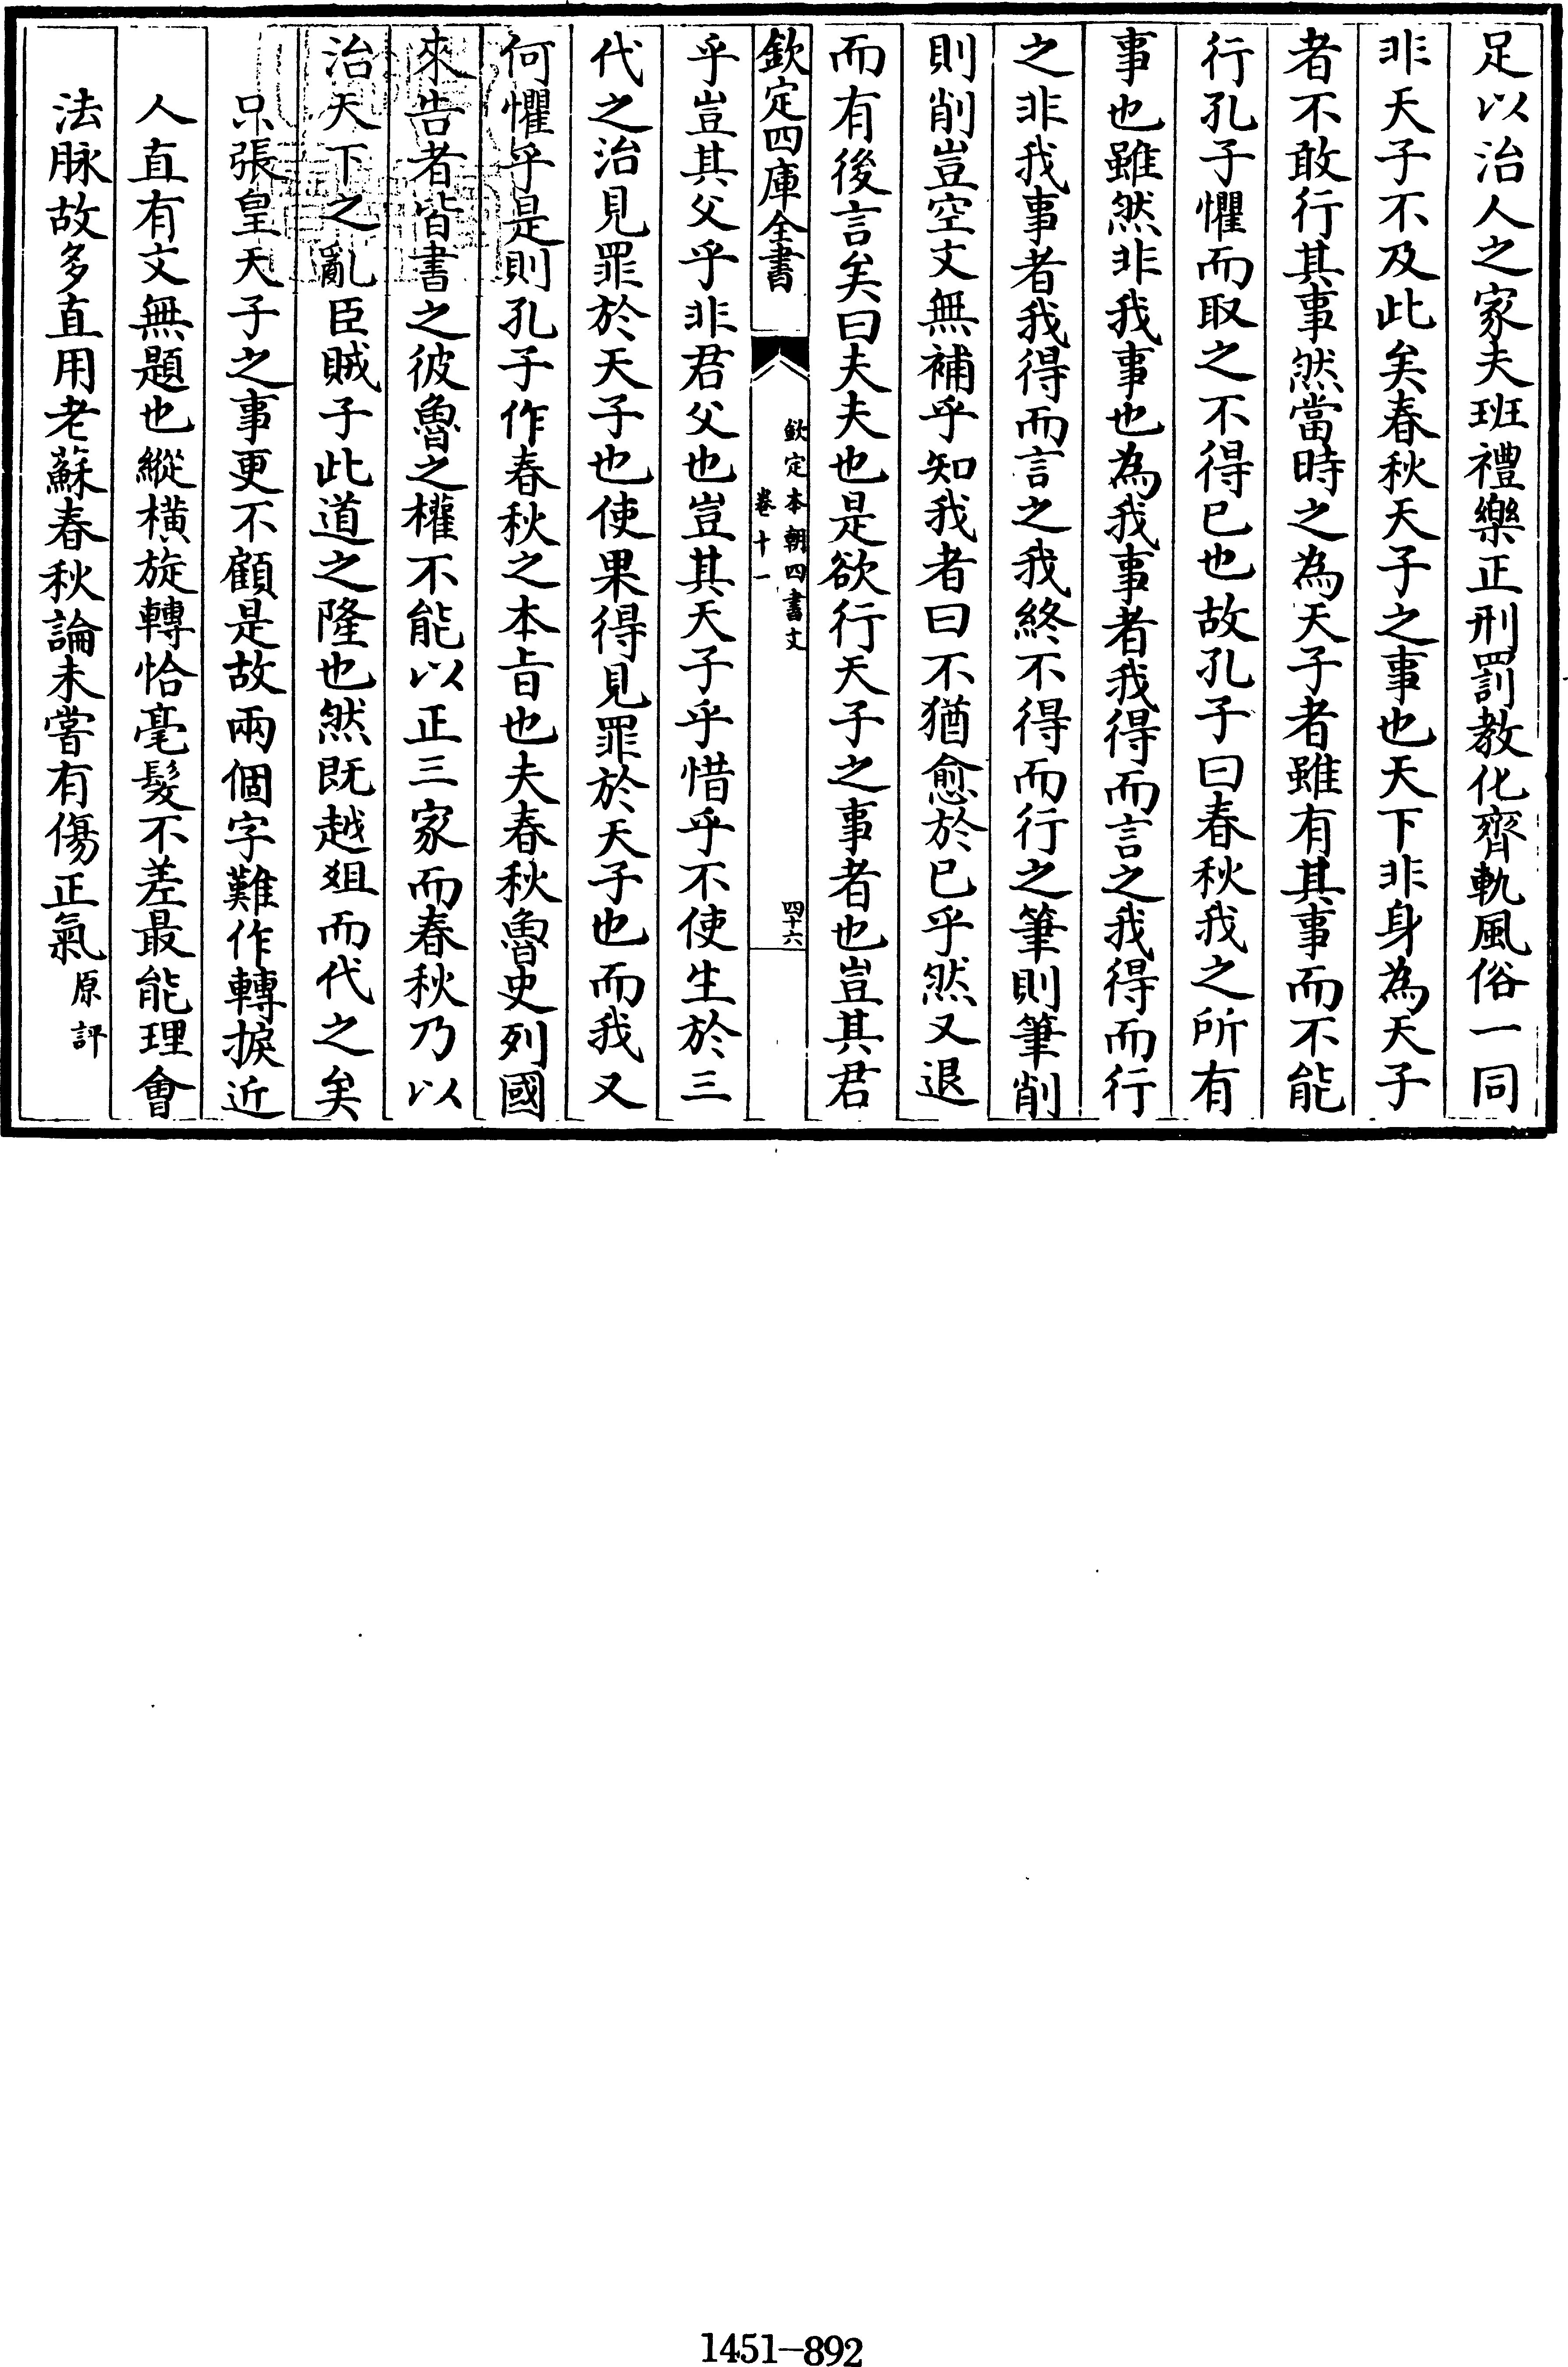 足以治人之家夫班禮樂正刑罰教化齊軌風俗一同
非天子不及此矣春秋天子之事也天下非身為天子
者不敢行其事然當時之為天子者雖有其事而不能
行孔子懼而取之不得已也故孔子曰春秋我之所有
事也雖然非我事也為我事者我得而言之我得而行
之非我事者我得而言之我終不得而行之筆則筆削
則削豈空文無補乎知我者曰不猶愈於已乎然又退
而有後言矣曰夫夫也是欲行天子之事者也豈其君
欽定四庫全書
欽定本朝四書文
卷十一
四十六
乎豈其父乎非君父也豈其天子乎惜乎不使生於三
代之治見罪於天子也使果得見罪於天子也而我又
何懼乎是則孔子作春秋之本旨也夫春秋魯史列國
來告者皆書之彼魯之權不能以正三家而春秋乃以
治天下之亂臣賊子此道之隆也然既越俎而代之矣
只張皇天子之事更不顧是故兩個字難作轉捩近
人直有文無題也縱橫旋轉恰毫髮不差最能理會
法脉故多直用老蘇春秋論未嘗有傷正氣原評
1451-892